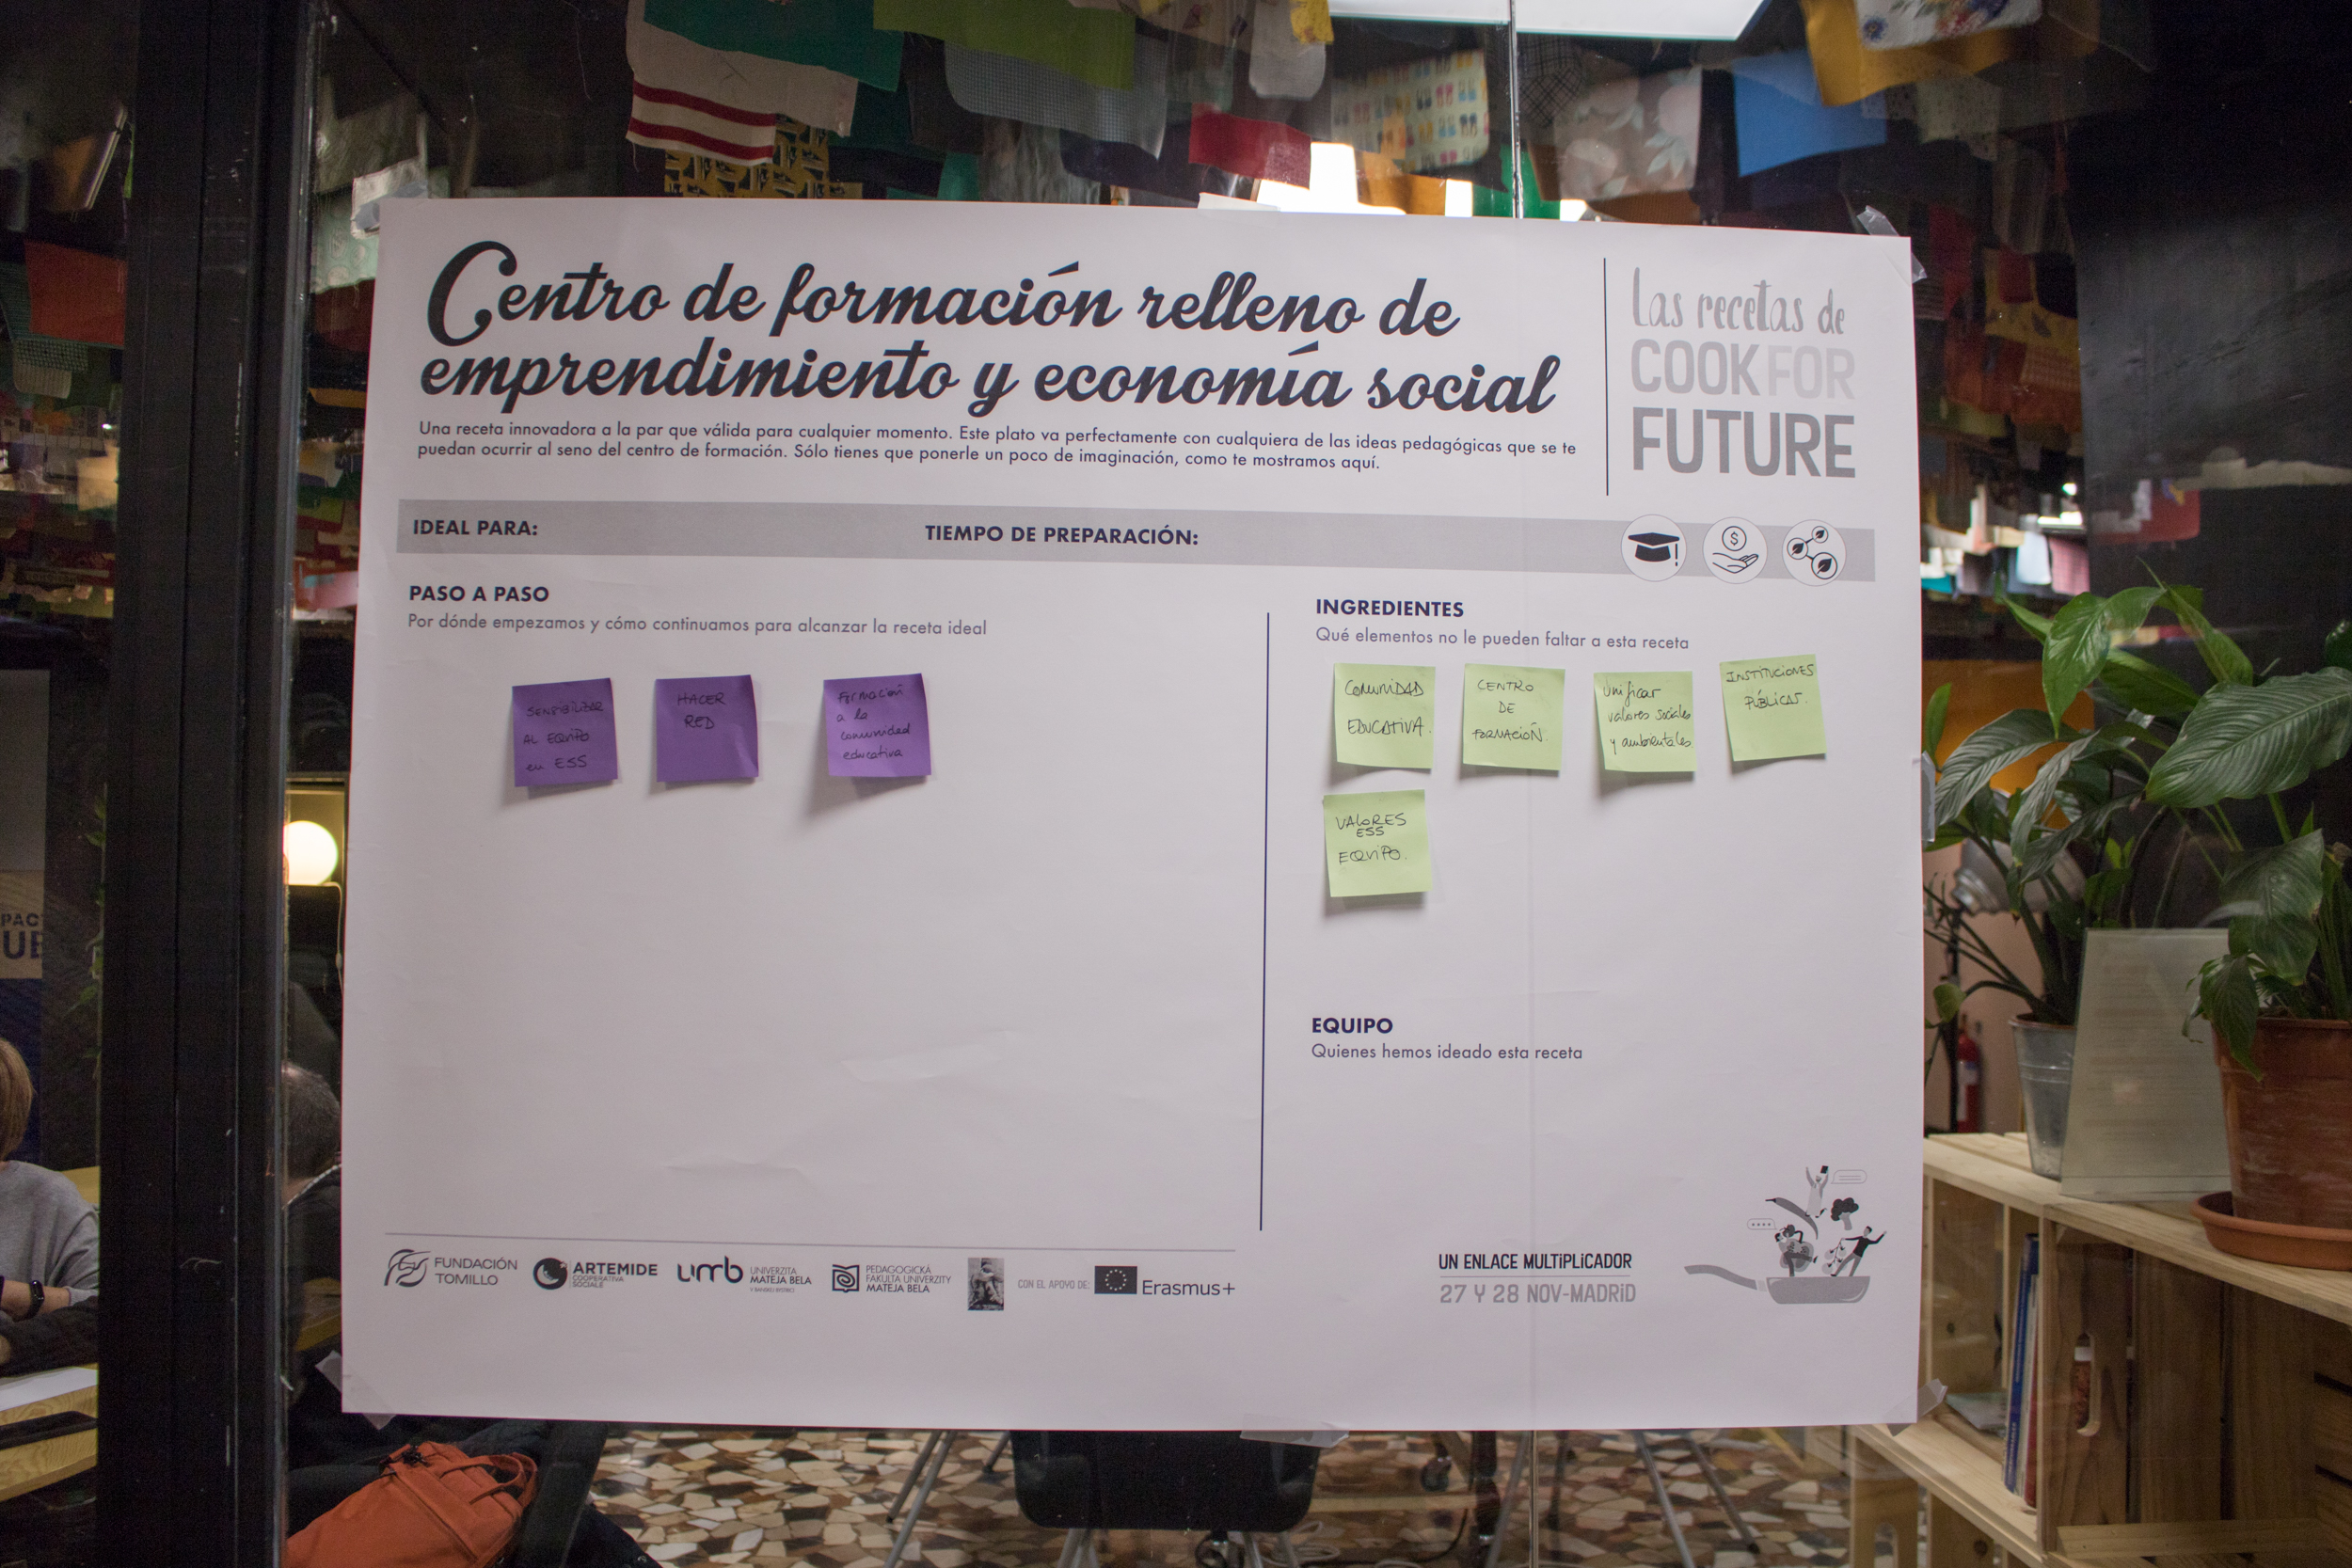 Centro de formación relleno de
emprendimiento y economía social
Una receta innovadora a la par que válida para cualquier momento. Este plato va perfectamente con cualquiera de las ideas pedagógicas que se te
puedan ocurrir al seno del centro de formación. Sólo tienes que ponerle un poco de imaginación, como te mostramos aquí.
Las recetas de
COOK FOR
FUTURE
IDEAL PARA:
TIEMPO DE PREPARACIÓN:
PASO A PASO
Por dónde empezamos y cómo continuamos para alcanzar la receta ideal
SENSIBILIZAR
AL EQUIPO
en ESS
HACER
RED
Formación
a la
comunidad
educativa
INGREDIENTES
Qué elementos no le pueden faltar a esta receta
COMUNIDAD
EDUCATIVA.
CENTRO
DE
FORMACIÓN.
Unificar
valores sociales
y ambientales
INSTITUCIONES
PÚBLICAS.
VALORES
ESS
EQUIPO.
EQUIPO
Quienes hemos ideado esta receta
FUNDACIÓN
TOMILLO
ARTEMIDE
COOPERATIVA
SOCIALE
umb
UNIVERZITA
MATEJA BELA
PEDAGOGICKÁ
FAKULTA UNIVERZITY
MATEJA BELA
CON EL APOYO DE:
Erasmus+
UN ENLACE MULTIPLICADOR
27 Y 28 NOV-MADRID
PAC
UB